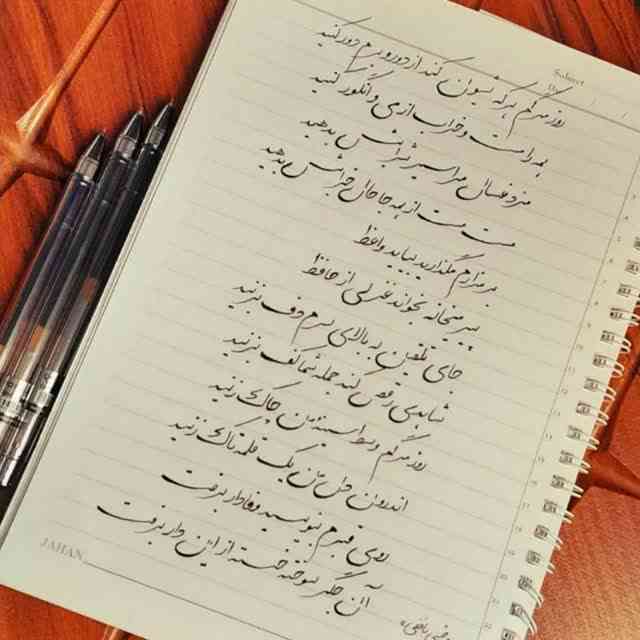 Subject
روز مرگم هر که شیون کند از دور و برم دور کنید
همه را مست و خراب از می انگور کنید
مزد غسال مرا سیر شرابش بدهید
مست مست از همه جا حال خرابش بدهید
بر مزارم مگذارید بیاید واعظ
پیر میخانه بخواند غزلی از حافظ
جای تلقین به بالای سرم دف بزنید
شاهدی رقص کند جمله شما کف بزنید
روز مرگم وسط سینه من چاک زنید
اندرون دل من یک قلمه تاک زنید
روی قبرم بنویسید وفادار برفت
آن جگر سوخته خسته از این دار برفت
وحشی بافقی
JAHAN